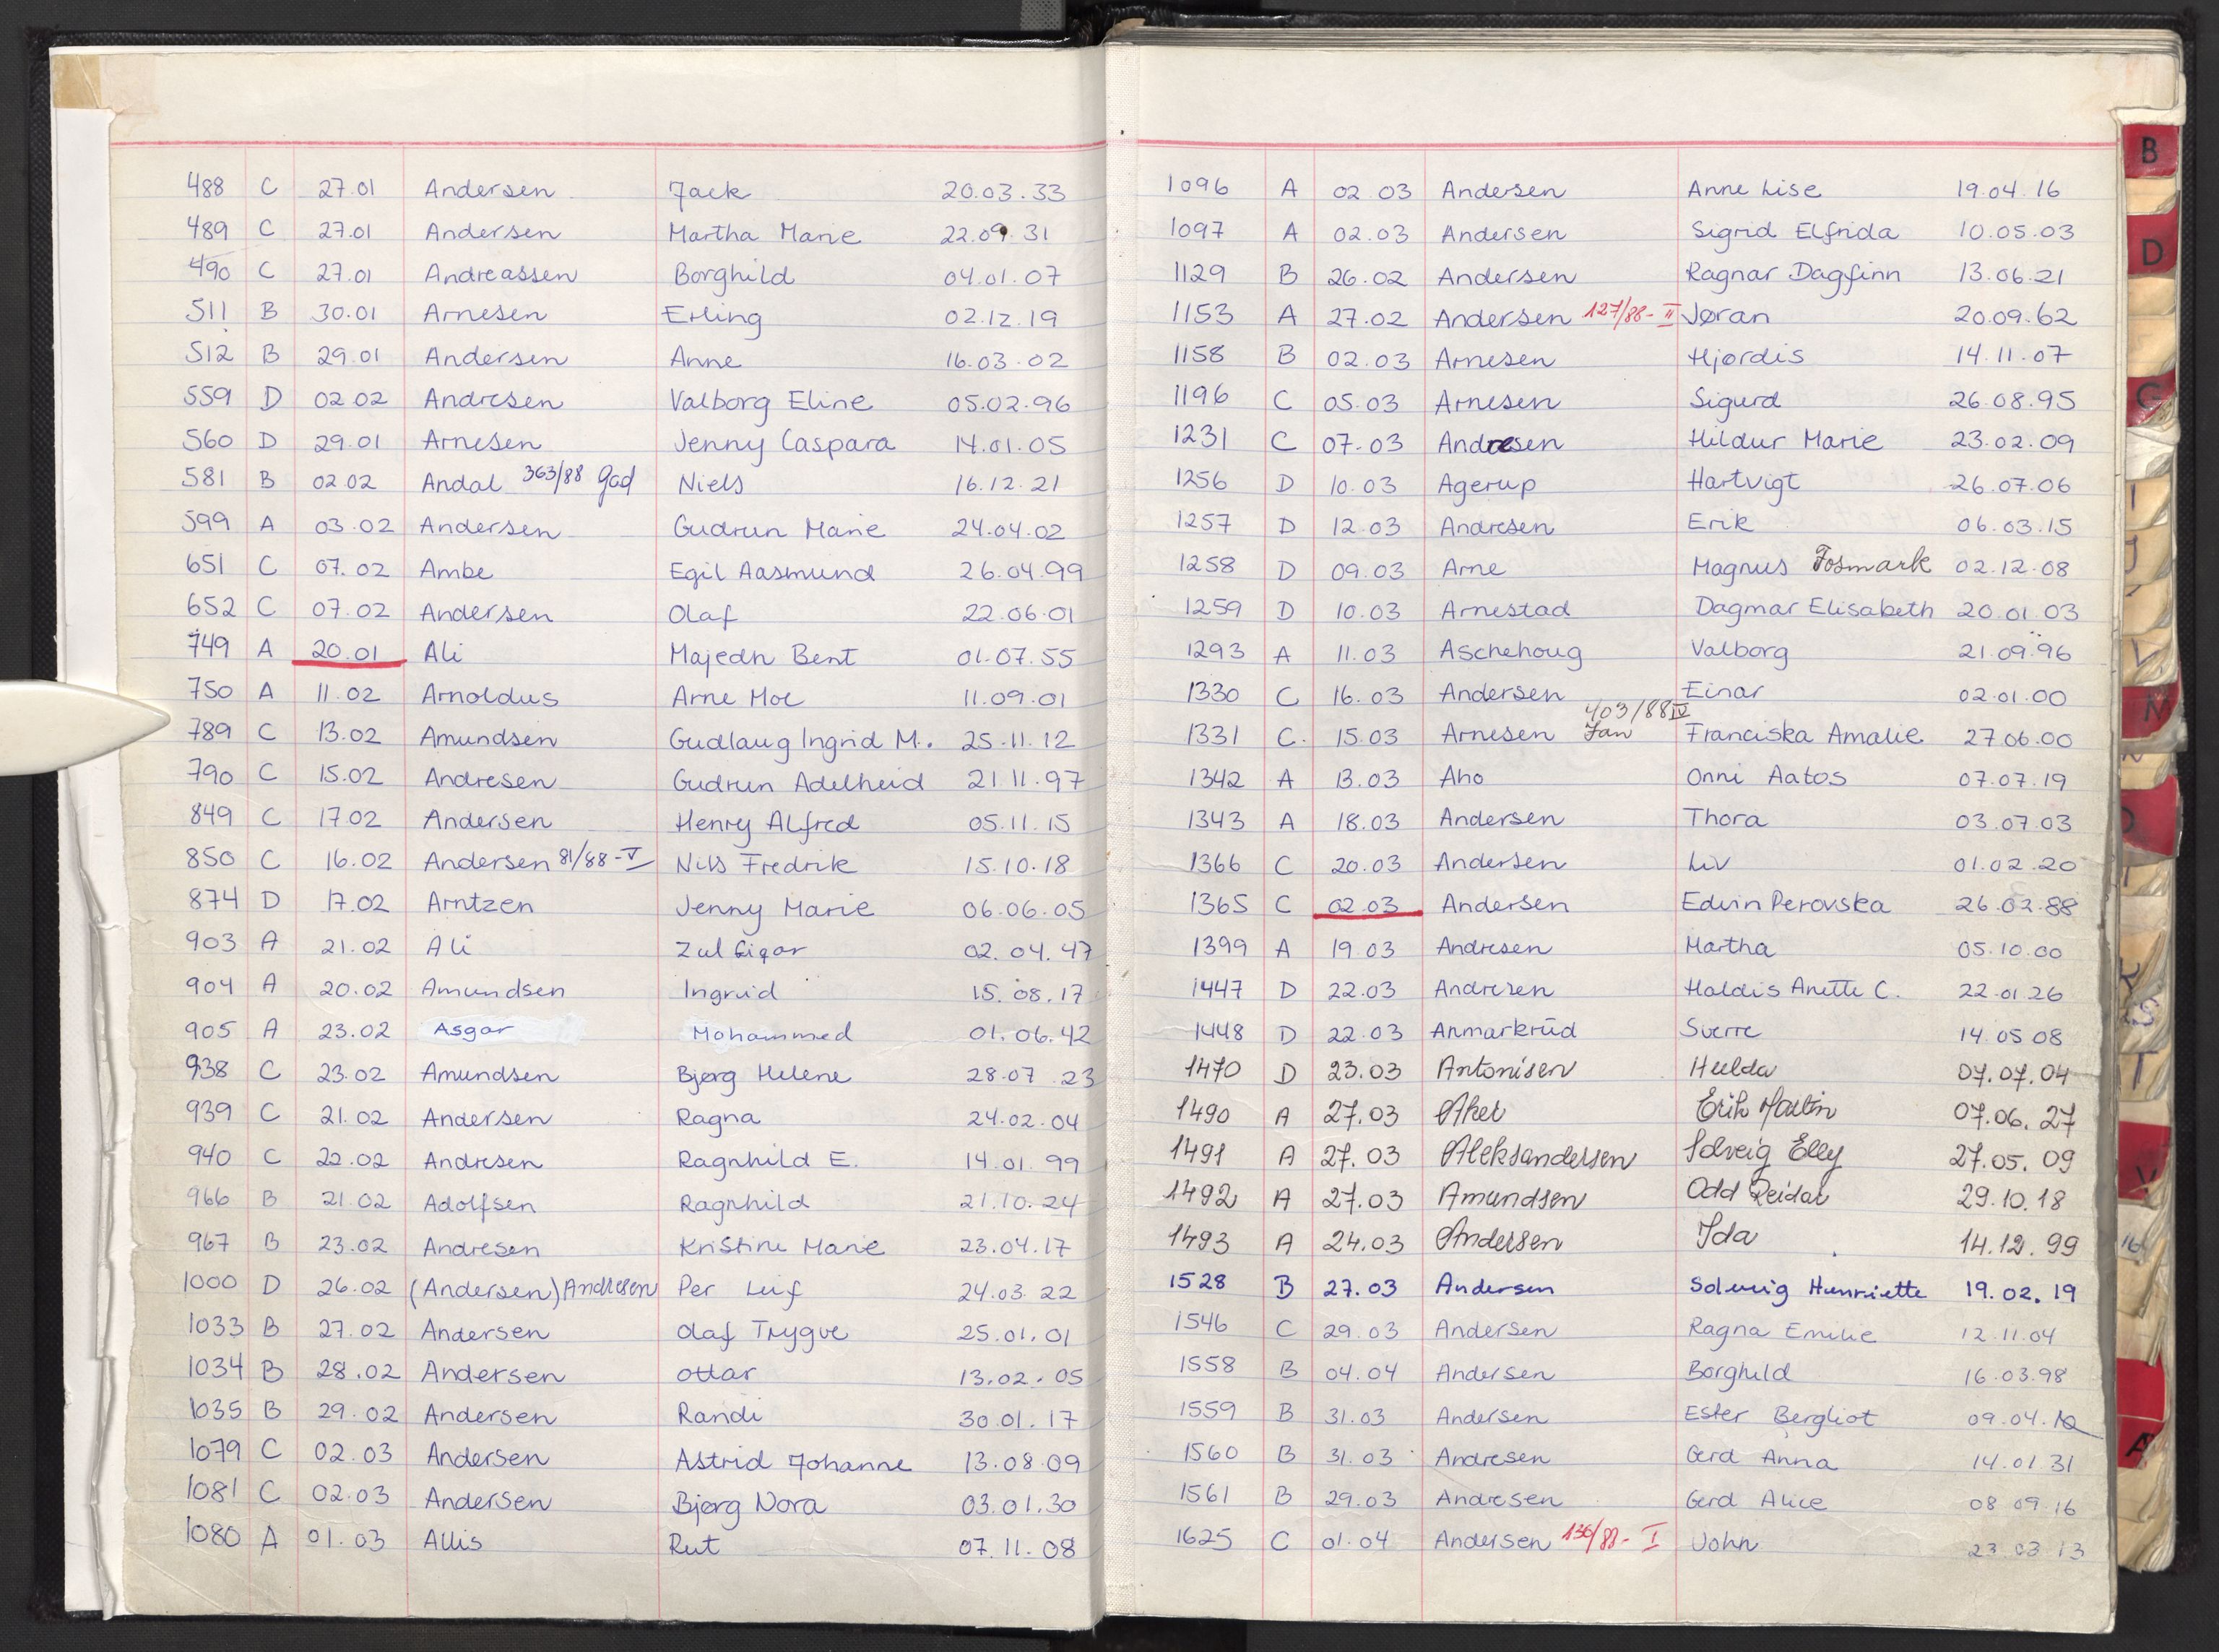 488 C 27.01 Andersen Jack 20.03.33
489 C 27.01 Andersen Martha Marie 22.09.31
490 C 27.01 Andreassen Borghild 04.01.07
511 B 30.01 Arnesen Erling 02.12.19
512 B 29.01 Andersen Anne 16.03.02
559 D 02.02 Andresen Valborg Eline 05.02.96
560 D 29.01 Arnesen Jenny Caspara 14.01.05
581 B 02.02 Andal 363/88 Gad Niels 16.12.21
599 A 03.02 Andersen Gudrun Marie 24.04.02
651 C 07.02 Ambe Egil Aasmund 26.04.99
652 C 07.02 Andersen Olaf 22.06.01
749 A 20.01 Ali Majedn Bent 01.07.55
750 A 11.02 Arnoldus Arne Moe 11.09.01
789 C 13.02 Amundsen Gudlaug Ingrid M. 25.11.12
790 C 15.02 Andresen Gudrun Adelheid 21.11.97
849 C 17.02 Andersen Henry Alfred 05.11.15
850 C 16.02 Andersen 81/88-V Nils Fredrik 15.10.18
874 D 17.02 Arntzen Jenny Marie 06.06.05
903 A 21.02 Ali 02.04.47
904 A 20.02 Amundsen Ingrid 15.08.17
905 A 23.02 Asgar Mohammed 01.06.42
938 C 23.02 Amundsen Bjørg Helene 28.07.23
939 C 21.02 Andersen Ragna 24.02.04
940 C 22.02 Andresen Ragnhild E. 14.01.99
966 B 21.02 Adolfsen Ragnhild 21.10.24
967 B 23.02 Andresen Kristine Marie 23.04.17
1000 D 26.02 (Andersen) Andresen Per Leif 24.03.22
1033 B 27.02 Andersen Olaf Trygve 25.01.01
1034 B 28.02 Andersen Ottar 13.02.05
1035 B 29.02 Andersen Randi 30.01.17
1079 C 02.03 Andersen Astrid Johanne 13.08.09
1081 C 02.03 Andersen Bjørg Nora 03.01.30
1080 A 01.03 Allis Rut 07.11.08
1096 A 02.03 Andersen Anne Lise 19.04.16
1097 A 02.03 Andersen Sigrid Elfrida 10.05.03
1129 B 26.02 Andersen Ragnar Dagfinn 13.06.21
1153 A 27.02 Andersen 127/88-II Jøran 20.09.62
1158 B 02.03 Arnesen Hjørdis 14.11.07
1196 C 05.03 Arnesen Sigurd 26.08.95
1231 C 07.03 Andresen Hildur Marie 23.02.09
1256 D 10.03 Agerup Hartvigt 26.07.06
1257 D 12.03 Andresen Erik 06.03.15
1258 D 09.03 Arne Magnus Fosmark 02.12.08
1259 D 10.03 Arnestad Dagmar Elisabeth 20.01.03
1293 A 11.03 Aschehoug Valborg 21.09.96
1330 C 16.03 Andersen Einar 02.01.00
403/88 IV
1331 C. 15.03 Arnesen Jan Franciska Amalie 27.06.00
1342 A 13.03 Aho Onni Aatos 07.07.19
1343 A 18.03 Andersen Thora 03.07.03
1366 C 20.03 Andersen Liv 01.02.20
1365 C 02.03 Andersen Edvin Perovska 26.02.88
1399 A 19.03 Andresen Martha 05.10.00
1447 D 22.03 Andresen Haldis Anette C. 22.01.26
1448 D 22.03 Anmarkrud Sverre 14.05.08
1470 D 23.03 Antonisen Hulda 07.07.04
1490 A 27.03 Aker Erik Martin 07.06.27
1491 A 27.03 Aleksandersen Solveig Elly 27.05.09
1492 A 27.03 Amundsen Odd Reidar 29.10.18
1493 A 24.03 Andersen Ida 14.12.99
1528 B 27.03 Andersen Solveig Henriette 19.02.19
1546 C 29.03 Andersen Ragna Emilie 12.11.04
1558 B 04.04 Andersen Borghild 16.03.98
1559 B 31.03 Andersen Ester Bergliot 09.04.
1560 B 31.03 Andresen Gerd Anna 14.01.31
1561 B 29.03 Andresen Gerd Alice 08.09.16
1625 C 01.04 Andersen 136/88-I John 23.03.13
B
D
G
I
J
L
M
S
T
V
A